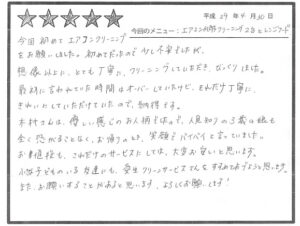 平成 29年 4月 30日
今回のメニュー：エアコン内部クリーニング 2台とレンジフード
今回 初めて エアコンクリーニング
をお願いしました。初めてだったので 少し不安でしたが、
想像以上に、とても 丁寧に、クリーニングしていただき、びっくりしました。
最初に言われていた 時間は オーバーしていましたけど、それだけ丁寧に、
きれいにしていただけていたので、納得です。
木村さんは、優しい感じの お人柄でしたので、人見知りの 3歳の娘も
全く怒がることなく、お帰りのとき、笑顔で バイバイと言っていました。
お値段も、これだけのサービスにしては、大変お安いと思います。
小さな子どものいる 友達にも、愛生クリーンサービスさんをすすめておこうと思います。
また、お願いすることがあると思います、よろしくお願いします!